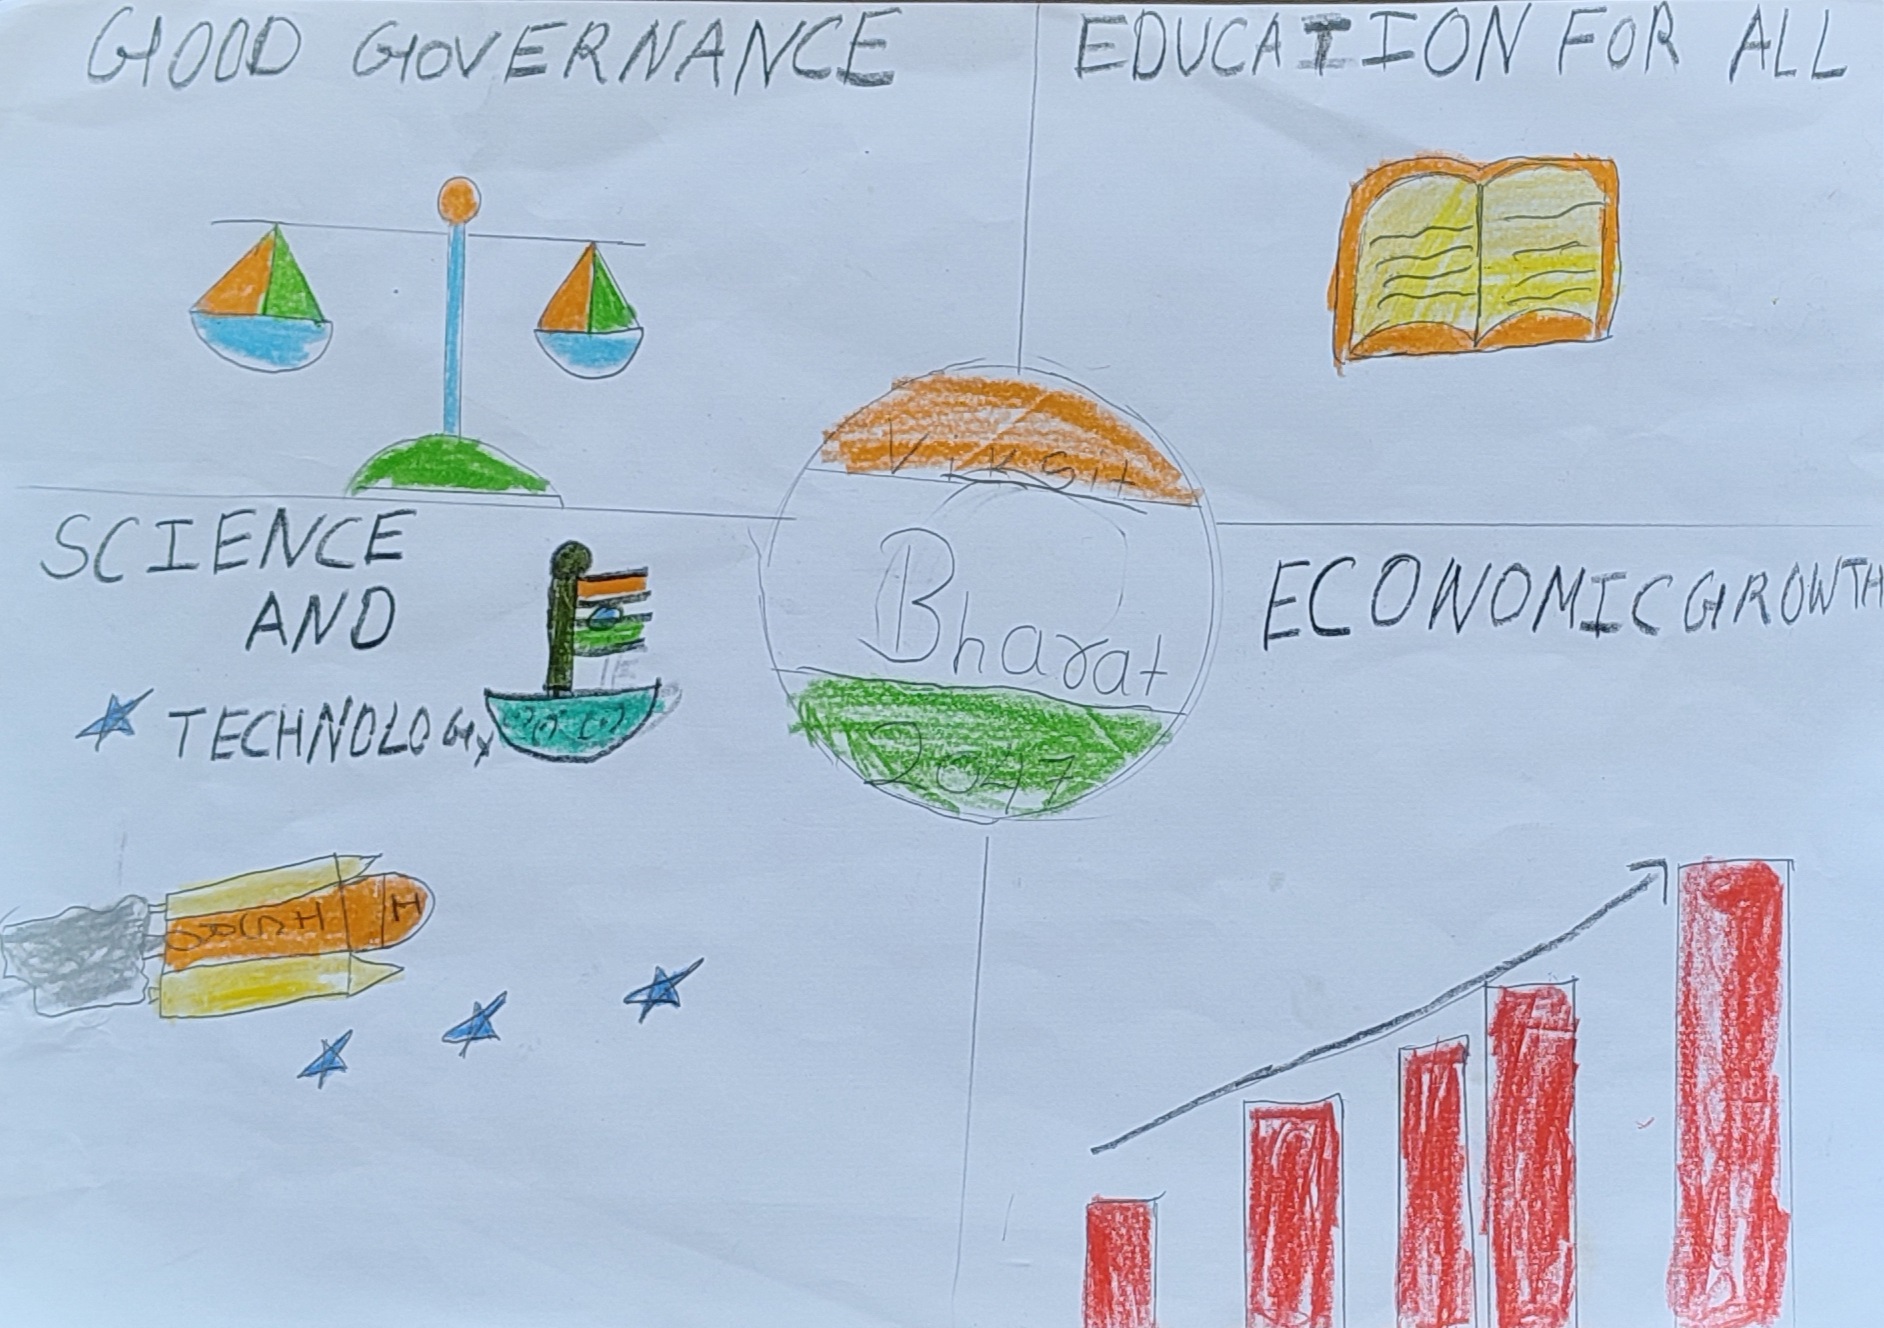 GOOD GOVERNANCE
EDUCATION FOR ALL
Viksit
Bharat
2047
SCIENCE
AND
TECHNOLOGY
ECONOMIC GROWTH